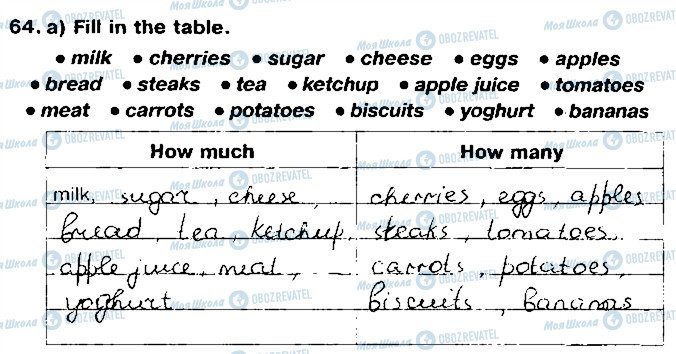 64. a) Fill in the table.
• milk • cherries • sugar • cheese • eggs • apples
• bread • steaks • tea • ketchup • apple juice • tomatoes
• meat • carrots • potatoes • biscuits • yoghurt • bananas
How much How many
milk, sugar, cheese, cherries, eggs, apples
bread, tea, ketchup, steaks, tomatoes
apple juice, meat, carrots, potatoes,
yoghurt biscuits, bananas
Моя Школа OBOZREVATEL